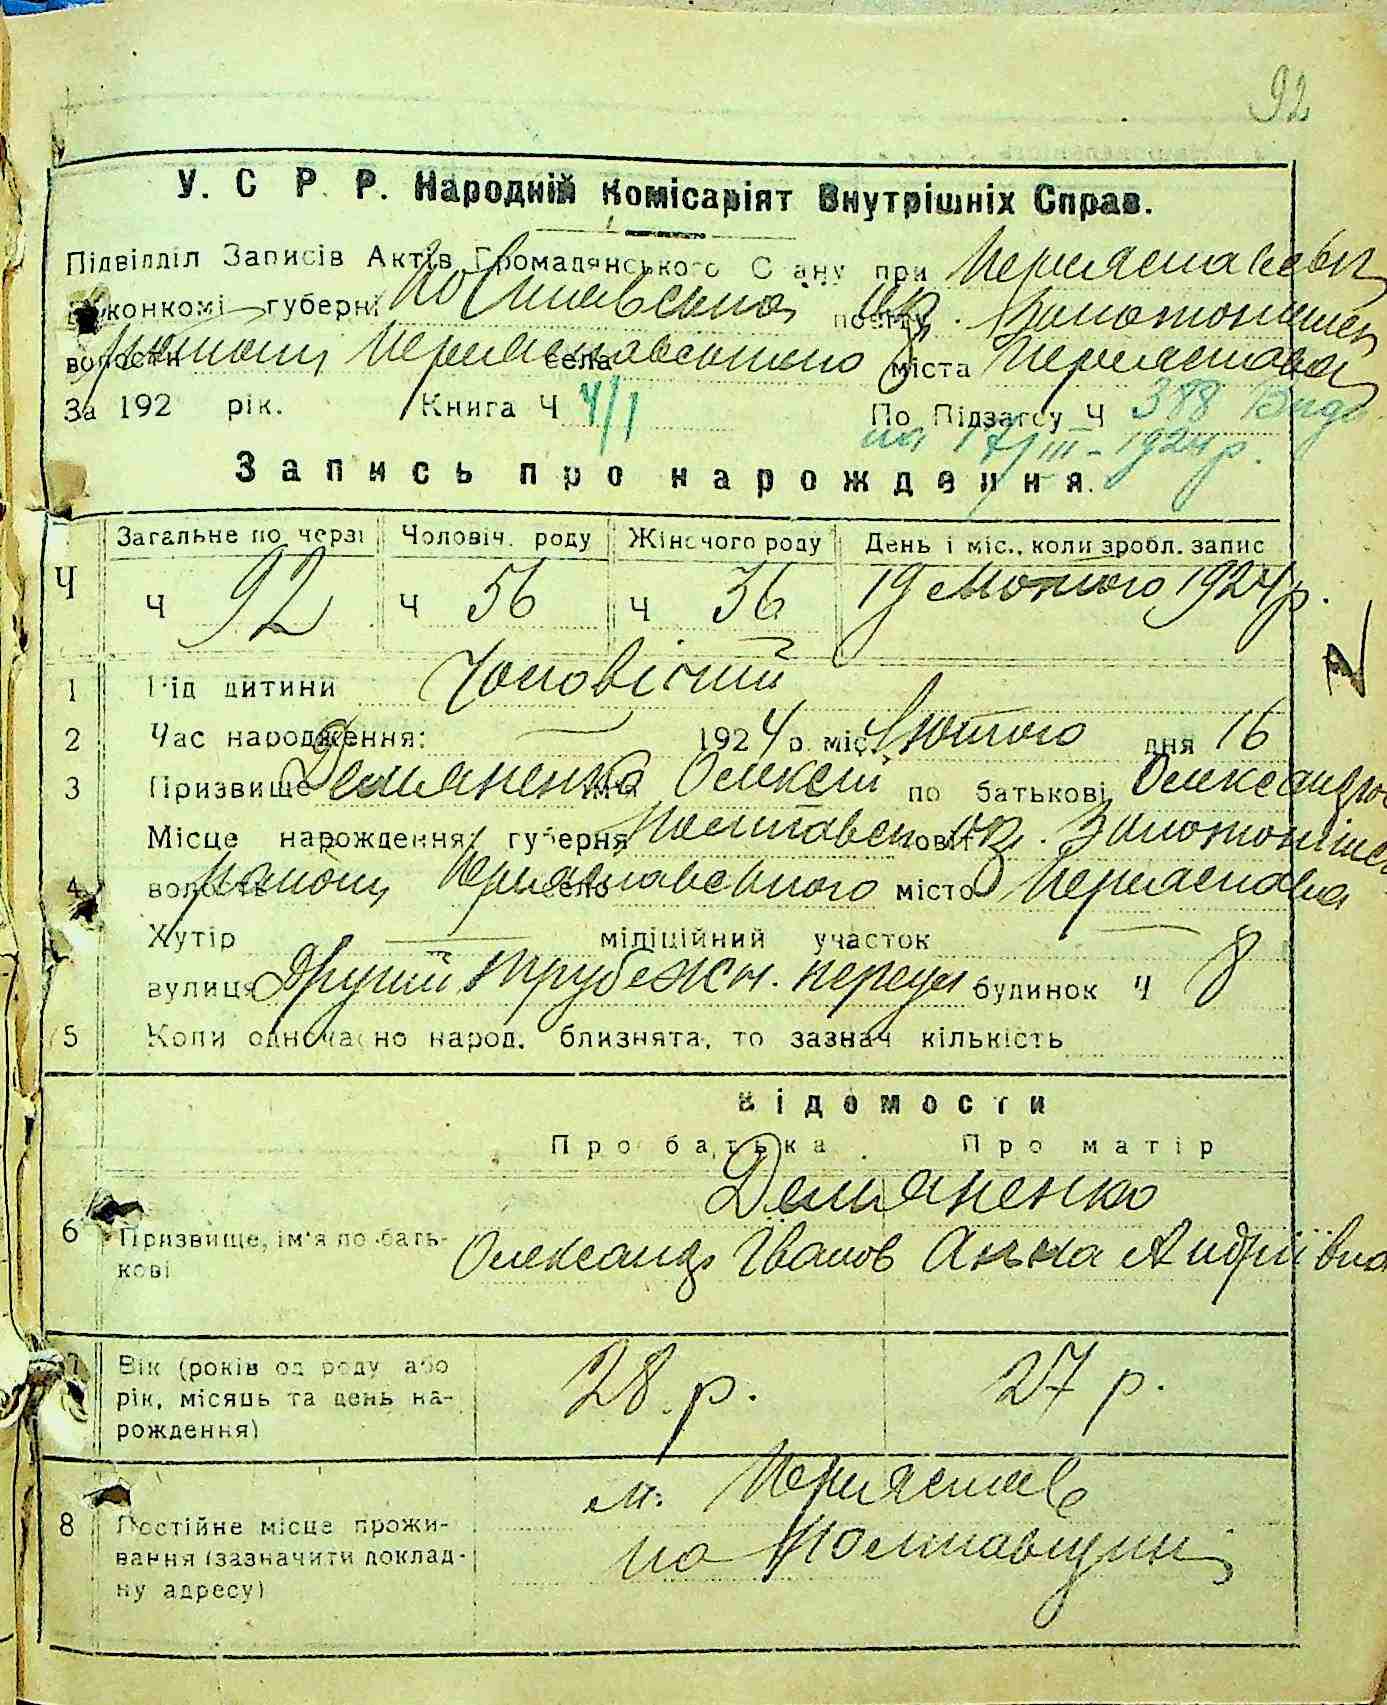 92
У. С Р Р. Народній Комісаріят Внутрішніх Справ.
Підвідділ Записів Актів Громадянського Стану при Переяславськ
конкомі губерні Полтавської повіту Окр. Золотоношськ
волости району Переяславського села міста Переяслава
За 192 рік. Книга Ч 4/1 По Підзагсу Ч 388
на 17/III-1924 р.
Запись про нарождення.
Ч Загальне по черзі Чоловіч. роду Жіночого роду День і міс., коли зробл. запис
ч 92 ч 56 ч 36 19 Лютого 1924 р.
1 Рід дитини Чоловічий
2 Час народження: 1924 р. міс. Лютого дня 16
3 Призвище Демяненко ім'я Олексій по батькові Олександров
Місце нарождення: губерня Полтавськ повіт Окр. Золотонішськ
4 волость району Переяславського село місто Переяслава
Хутір — міліційний участок —
вулиця Другий Трубежн. переул будинок Ч 8
5 Коли одночасно народ. близнята, то зазнач кількість
Відомости
Про батька Про матір
Демяненко
6 Призвище, ім'я по бать-
кові Олександр Іванов Анна Андріївна
7 Вік (років од роду або
рік, місяць та день на-
рождення) 28 р. 27 р.
м. Переяслав
8 Постійне місце прожи-
вання (зазначити доклад-
ну адресу) на Полтавщині